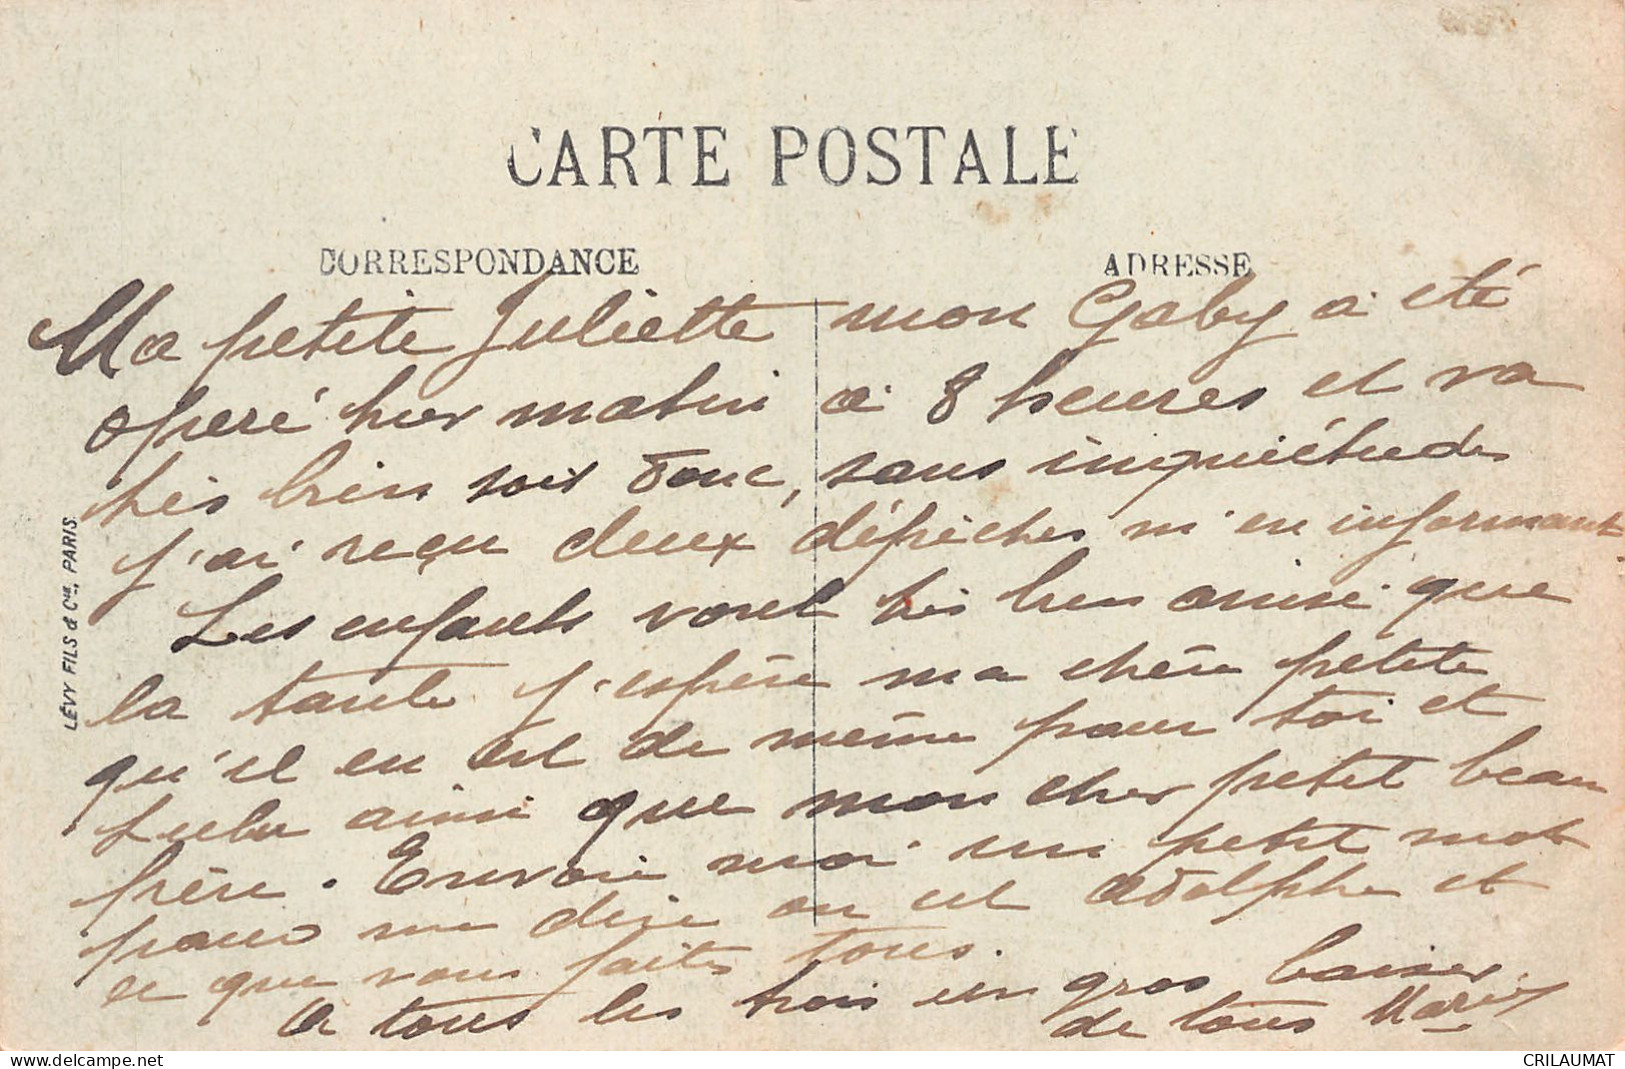 CARTE POSTALE
CORRESPONDANCE
ADRESSE
Ma petite Juliette mon Gaby a été
operé hier matin a 8 heures et va
très bien sois donc, sans inquiétudes
j'ai reçu deux dépêches m'en informant.
Les enfants vont très bien ainsi que
la tante j'espère ma chère petite
qu'il en est de même pour toi et
Lulu ainsi que mon cher petit beau
frère. Envoie moi un petit mot
pour me dire ou est Adolphe et
ce que vous faites tous.
A tous les trois un gros baiser
de tous Marie
LÉVY FILS & Cie, PARIS
CRILAUMAT
delcampe.net